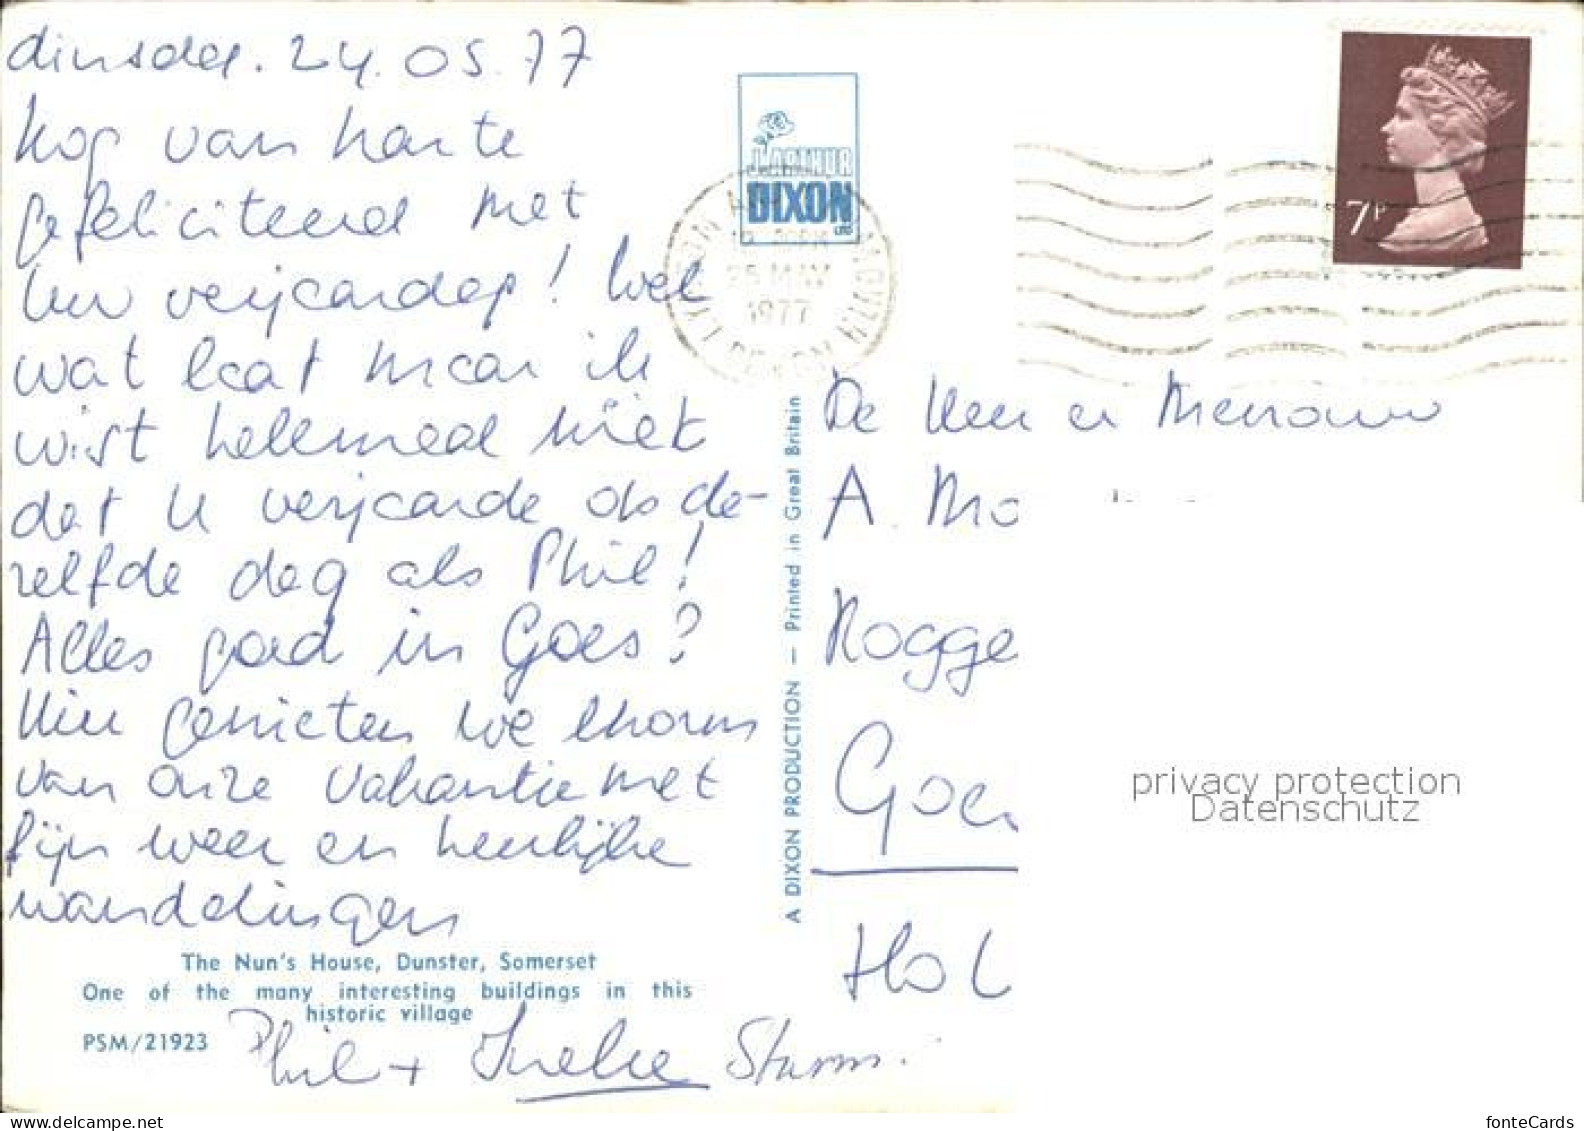 dinsdag. 24.05.77
Nog van harte
gefeliciteerd met
Uw verjaardag! Wel
wat laat maar ik
wist helemaal niet
dat U verjaarde op de-
zelfde dag als Phil!
Alles goed in Goes?
Hier genieten we enorm
van onze vakantie met
fijn weer en heerlijke
wandelingen
The Nun's House, Dunster, Somerset
One of the many interesting buildings in this
historic village
PSM/21923
Phil + Ineke Sturm.
J. ARTHUR
DIXON
GB
25 MAY
1977
DEVON
A DIXON PRODUCTION — Printed in Great Britain
7P
De Heer en Mevrouw
A. Mo
Rogge
Goes
Hol
privacy protection
Datenschutz
fonteCards